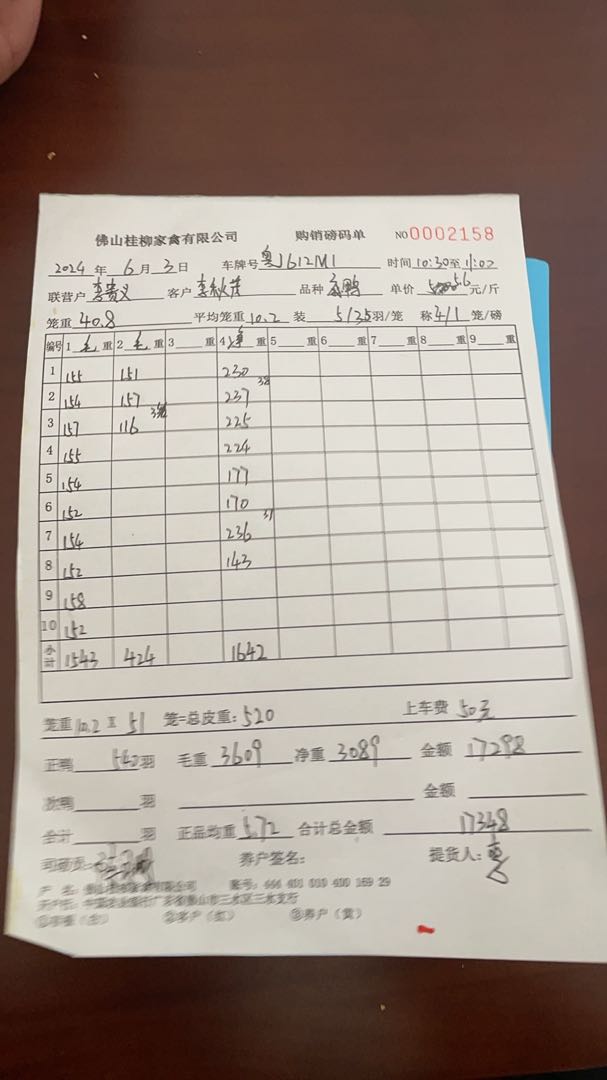 佛山桂柳家禽有限公司 购销磅码单 NO0002158
2024年6月3日 车牌号粤J612M1 时间10:30至11:02
联营户李贵义 客户 品种 单价5.6元/斤
笼重40.8 平均笼重10.2 装5/35羽/笼 称4/1笼/磅
编号 1毛重 2毛重 3重 4净重 5重 6重 7重 8重 9重
1 155 151 230
2 154 157 237
3 157 116 225
4 155 224
5 154 177
6 152 170
7 154 236
8 152 143
9 158
10 152
小计 1543 424 1642
笼重10.2 X 51 笼=总皮重:520 上车费50元
正鸭540羽 毛重3609 净重3089 金额17298
次鸭羽 金额
合计羽 正品均重5.72 合计总金额17348
司磅员: 养户签名: 提货人:
户 名:佛山桂柳家禽有限公司 账号:
①存根(白) ②客户(红) ③养户(黄)